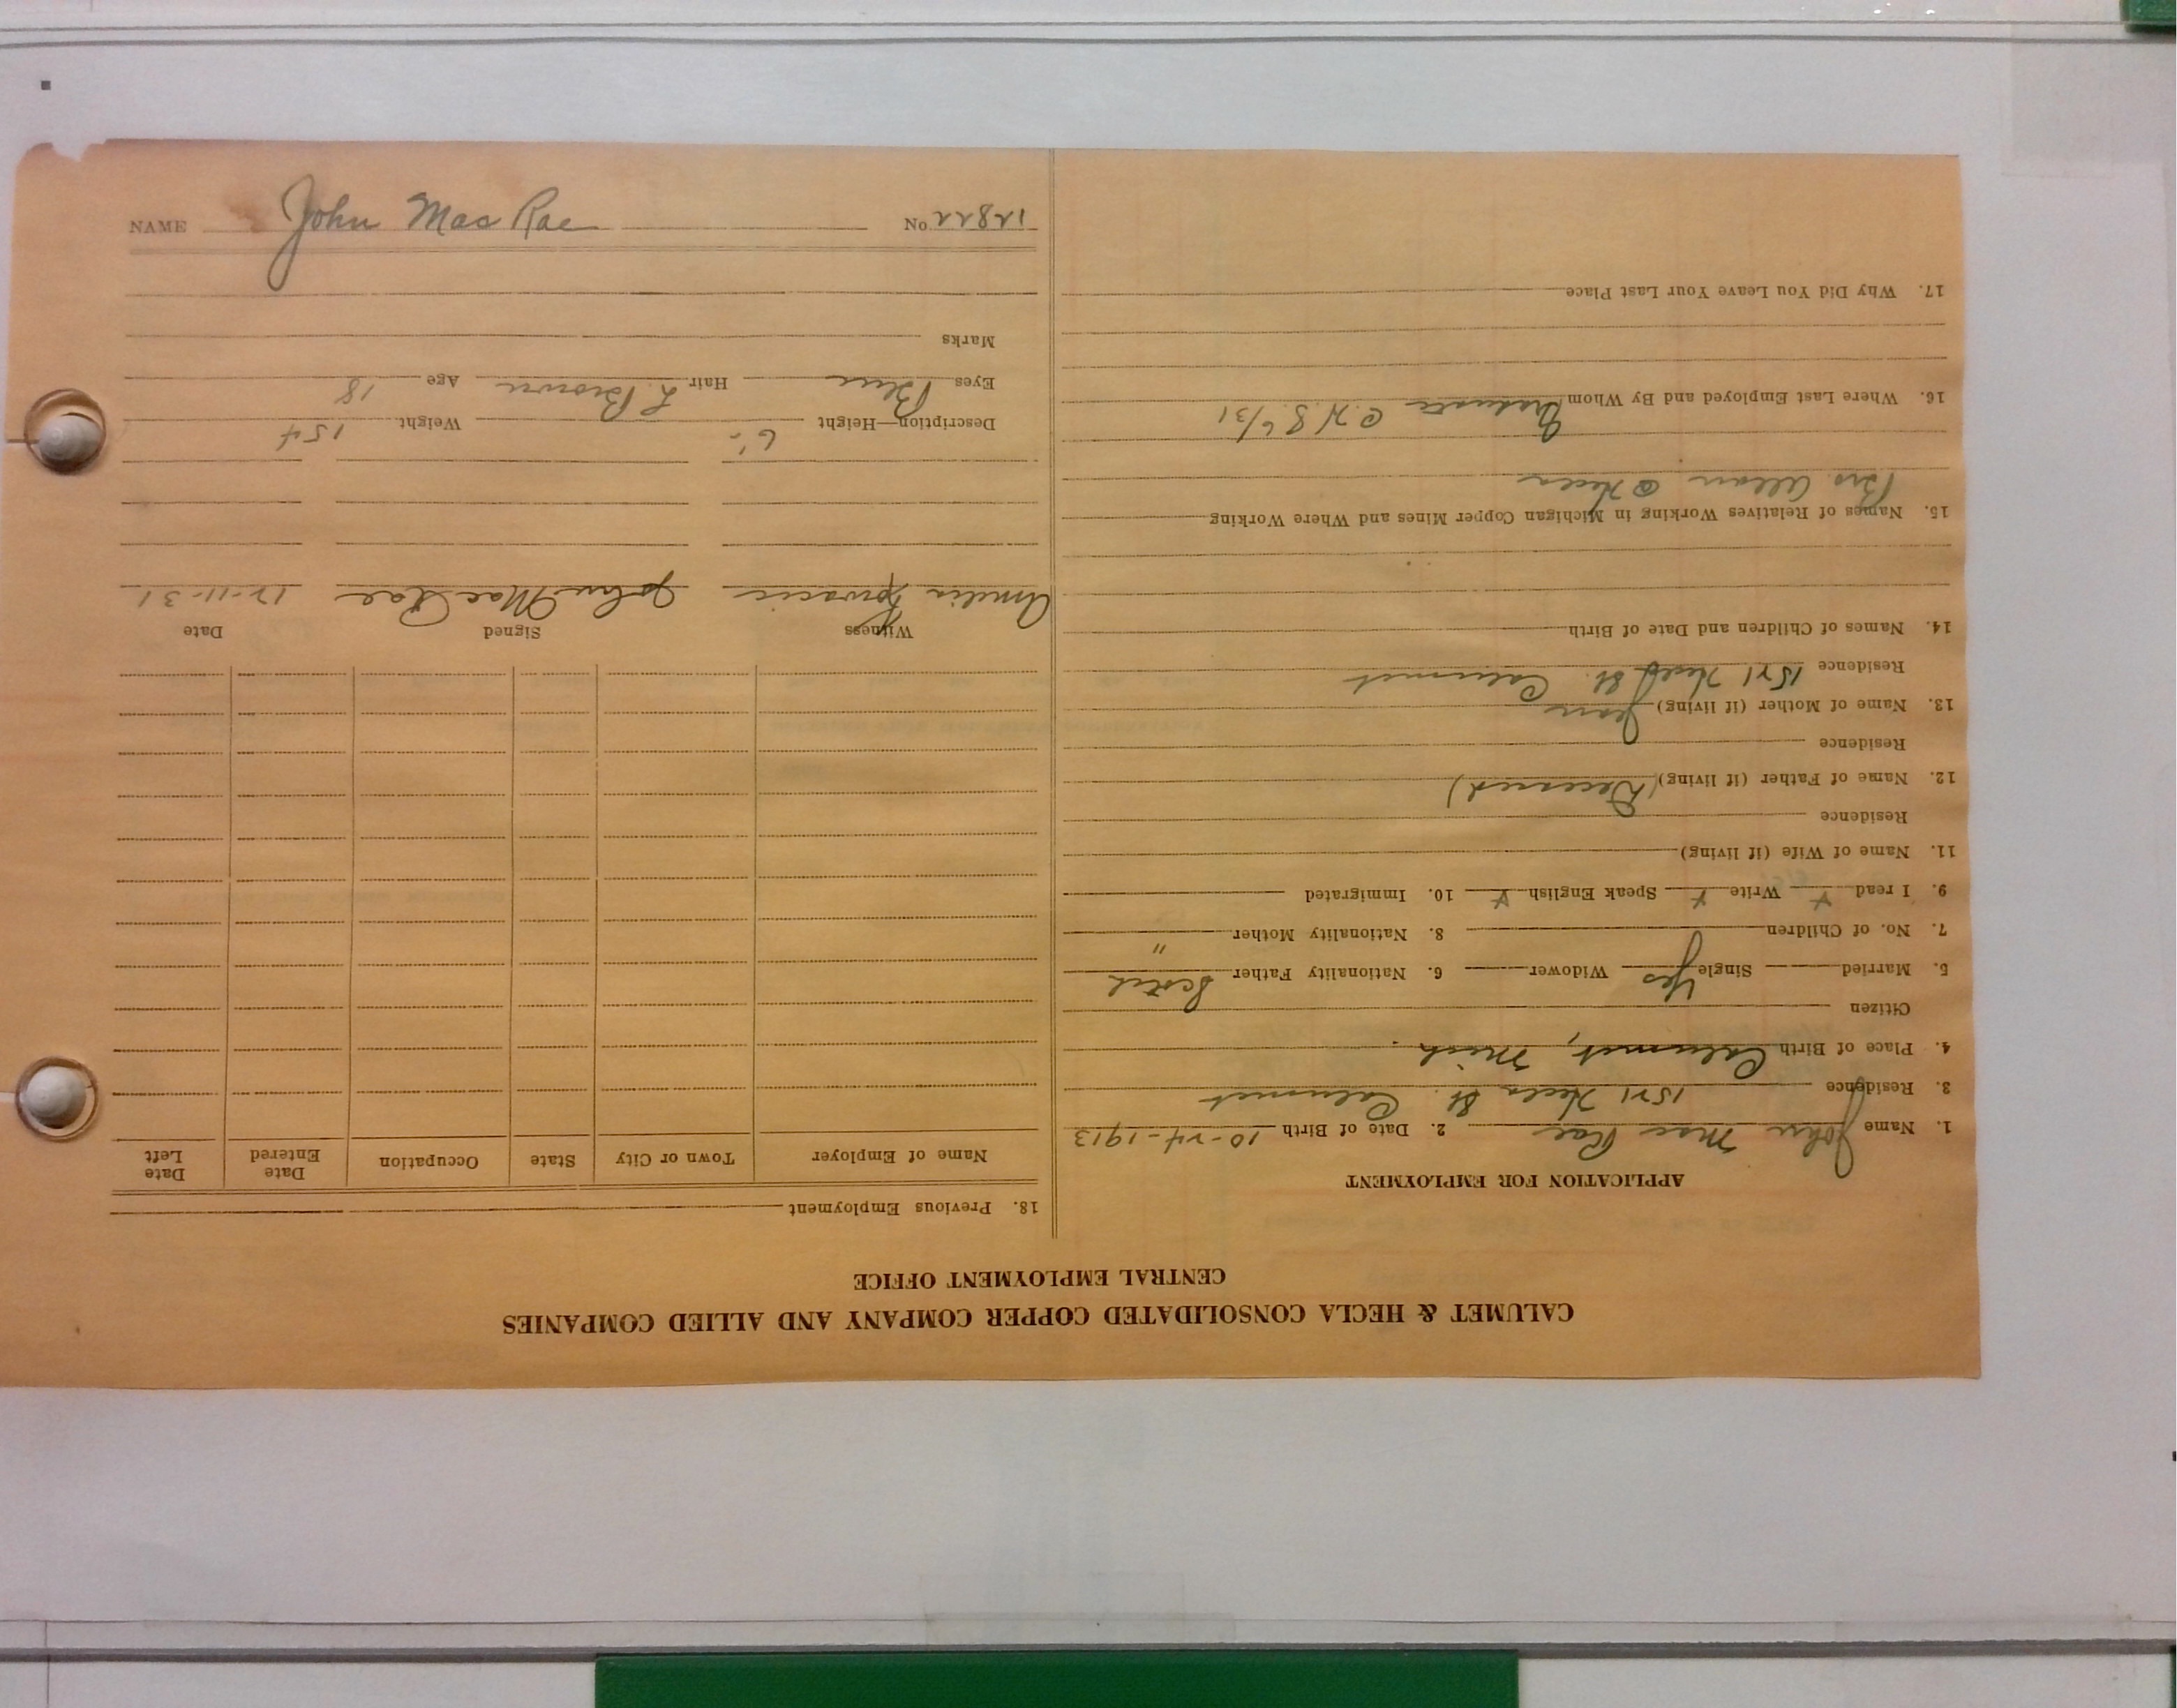 CALUMET & HECLA CONSOLIDATED COPPER COMPANY AND ALLIED COMPANIES
CENTRAL EMPLOYMENT OFFICE
APPLICATION FOR EMPLOYMENT
1. Name John Mac Rae 2. Date of Birth 10-24-1913
3. Residence 1521 Hecla St. Calumet
4. Place of Birth Calumet, Mich.
Citizen
5. Married Single Yes Widower 6. Nationality Father Scotch
7. No. of Children 8. Nationality Mother "
9. I read x Write x Speak English x 10. Immigrated
11. Name of Wife (if living)
Residence
12. Name of Father (if living) (Deceased)
Residence
13. Name of Mother (if living) Jean
Residence 1521 Hecla St. Calumet
14. Names of Children and Date of Birth
15. Names of Relatives Working in Michigan Copper Mines and Where Working
Bro. Allan @ Hecla
16. Where Last Employed and By Whom Graduate C.H.S. 6/31
17. Why Did You Leave Your Last Place
18. Previous Employment
Name of Employer Town or City State Occupation Date Entered Date Left
Witness Signed Date
Amelia John Mac Rae 12-11-31
Description—Height 6'- Weight 154
Eyes Blue Hair L Brown Age 18
Marks
NAME John Mac Rae No. 12822